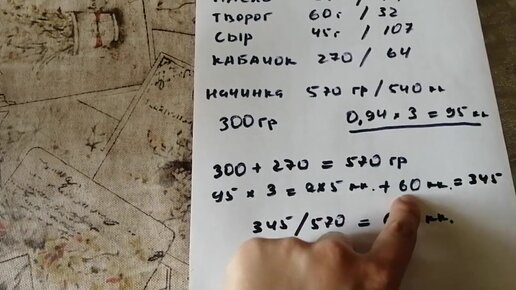 ТВОРОГ 60г / 32
СЫР 45г / 107
КАБАЧОК 270 / 64
НАЧИНКА 570 гр / 540 кк
300 гр 0,94 × 3 = 95 кк
300 + 270 = 570 гр
95 × 3 = 285 кк. + 60 кк. = 345
345 / 570 =